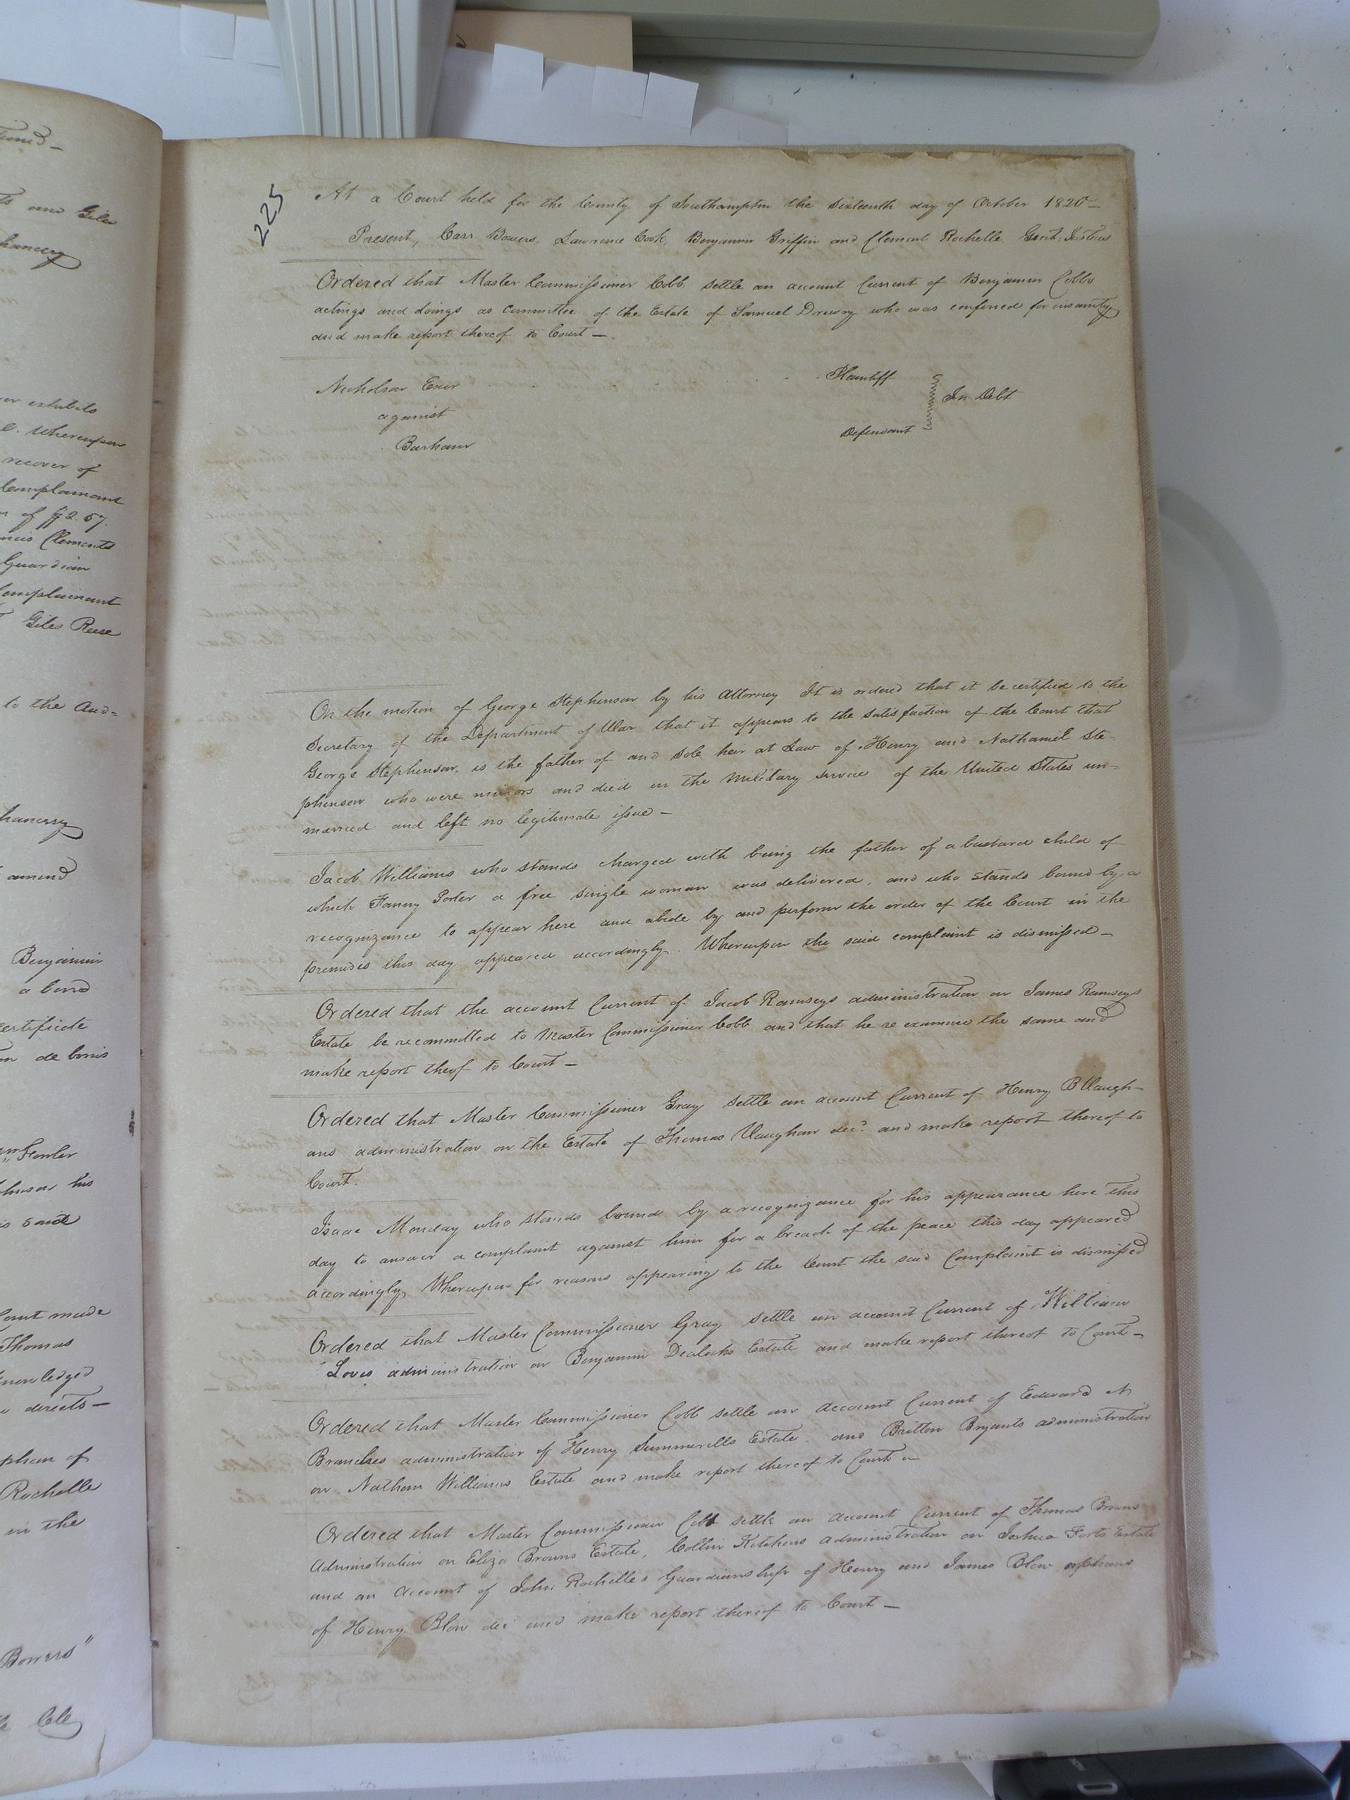 225
At a Court held for the County of Southampton the sixteenth day of October 1820—
Present, Carr Bowers, Lawrence Cook, Benjamin Griffin and Clement Rochelle Gent. Justices
Ordered that Master Commissioner Cobb settle an account Current of Benjamin Cobbs
actings and doings as Committee of the Estate of Samuel Drewry who was confined for insanity
and make report thereof to Court—.
Nicholson Exor Plaintiff
against In Debt
Barham Defendant
On the motion of George Stephenson by his Attorney It is ordered that it be certified to the
Secretary of the Department of War that it appears to the satisfaction of the Court that
George Stephenson, is the father of and sole heir at Law of Henry and Nathaniel Ste-
phenson who were minors and died in the Military service of the United States un-
married and left no legitimate issue—
Jacob Williams who stands charged with being the father of a bastard child of
which Fanny Porter a free single woman was delivered, and who stands bound by a
recognizance to appear here and abide by and perform the order of the Court in the
premises this day appeared accordingly. Whereupon the said complaint is dismissed—
Ordered that the account Current of Jacob Ramseys administration on James Ramseys
Estate be recommitted to Master Commissioner Cobb and that he re examine the same and
make report theof to Court—
Ordered that Master Commissioner Gray settle an account Current of Henry B Vaugh-
ans administration on the Estate of Thomas Vaughan decd. and make report thereof to
Court.
Isaac Monday who stands bound by a recognizance for his appearance here this
day to answer a complaint against him for a breach of the peace this day appeared
accordingly Whereupon for reasons appearing to the Court the said Complaint is dismissed
Ordered that Master Commissioner Gray settle an account Current of William
Loves administration on Benjamin Dealochs Estate and make report thereof to Court—
Ordered that Master Commissioner Cobb settle an account Current of Edward N
Branches administration of Henry Summerells Estate. and Britton Bryants administration
on Nathan Williams Estate and make report thereof to Court—
Ordered that Master Commissioner Cobb settle an account Current of Thomas Browns
Administration on Eliza Browns Estate, Collin Kitchens administration on Joshua Forts Estate
and an account of John Rochelle's Guardianship of Henry and James Blow orphans
of Henry Blow dec and make report thereof to Court—